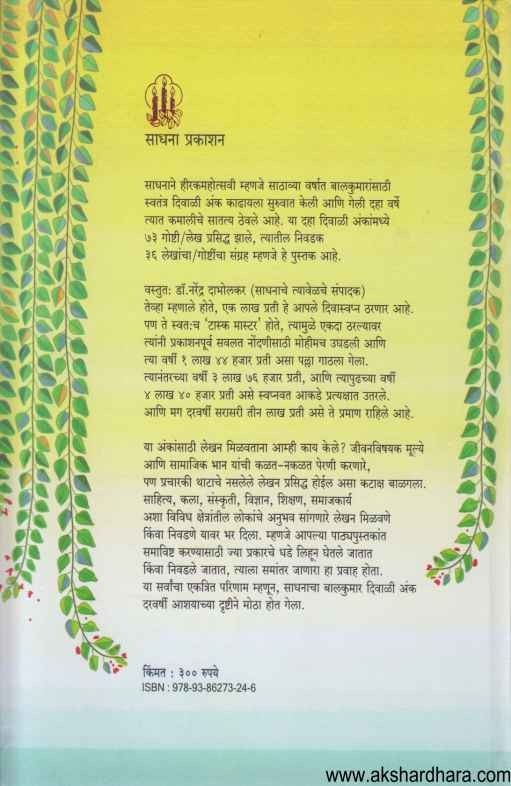 साधना प्रकाशन
साधनाने हीरकमहोत्सवी म्हणजे साठाव्या वर्षात बालकुमारांसाठी
स्वतंत्र दिवाळी अंक काढायला सुरुवात केली आणि गेली दहा वर्षे
त्यात कमालीचे सातत्य ठेवले आहे. या दहा दिवाळी अंकांमध्ये
७३ गोष्टी/लेख प्रसिद्ध झाले, त्यातील निवडक
३६ लेखांचा/गोष्टींचा संग्रह म्हणजे हे पुस्तक आहे.
वस्तुतः डॉ.नरेंद्र दाभोलकर (साधनाचे त्यावेळचे संपादक)
तेव्हा म्हणाले होते, एक लाख प्रती हे आपले दिवास्वप्न ठरणार आहे.
पण ते स्वतःच 'टास्क मास्टर' होते, त्यामुळे एकदा ठरल्यावर
त्यांनी प्रकाशनपूर्व सवलत नोंदणीसाठी मोहीमच उघडली आणि
त्या वर्षी १ लाख ४४ हजार प्रती असा पल्ला गाठला गेला.
त्यानंतरच्या वर्षी ३ लाख ७६ हजार प्रती, आणि त्यापुढच्या वर्षी
४ लाख ४० हजार प्रती असे स्वप्नवत आकडे प्रत्यक्षात उतरले.
आणि मग दरवर्षी सरासरी तीन लाख प्रती असे ते प्रमाण राहिले आहे.
या अंकांसाठी लेखन मिळवताना आम्ही काय केले? जीवनविषयक मूल्ये
आणि सामाजिक भान यांची कळत-नकळत पेरणी करणारे,
पण प्रचारकी थाटाचे नसलेले लेखन प्रसिद्ध होईल असा कटाक्ष बाळगला.
साहित्य, कला, संस्कृती, विज्ञान, शिक्षण, समाजकार्य
अशा विविध क्षेत्रांतील लोकांचे अनुभव सांगणारे लेखन मिळवणे
किंवा निवडणे यावर भर दिला. म्हणजे आपल्या पाठ्यपुस्तकांत
समाविष्ट करण्यासाठी ज्या प्रकारचे धडे लिहून घेतले जातात
किंवा निवडले जातात, त्याला समांतर जाणारा हा प्रवाह होता.
या सर्वांचा एकत्रित परिणाम म्हणून, साधनाचा बालकुमार दिवाळी अंक
दरवर्षी आशयाच्या दृष्टीने मोठा होत गेला.
किंमत : ३०० रुपये
ISBN : 978-93-86273-24-6
www.akshardhara.com